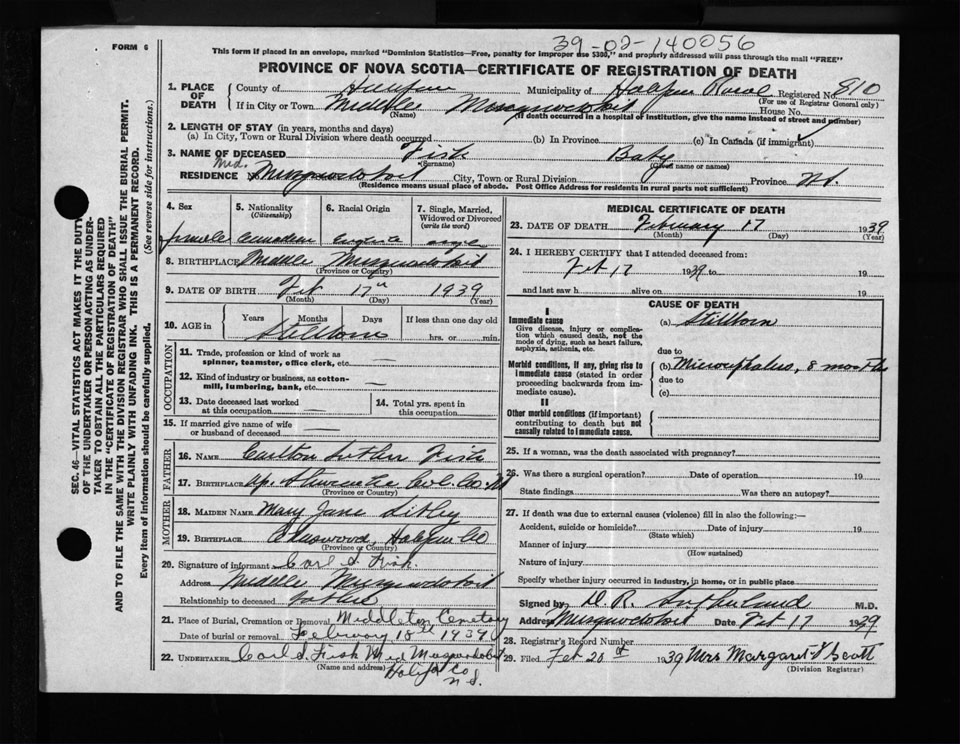 39-02-140056
FORM 6
This form if placed in an envelope, marked "Dominion Statistics—Free, penalty for improper use $300," and properly addressed will pass through the mail "FREE"
PROVINCE OF NOVA SCOTIA—CERTIFICATE OF REGISTRATION OF DEATH
1. PLACE OF DEATH
County of Halifax Municipality of Halifax Rural Registered No. 810
(For use of Registrar General only)
If in City or Town Middle Musquodoboit House No.
(Name) (If death occurred in a hospital or institution, give the name instead of street and number)
2. LENGTH OF STAY (in years, months and days)
(a) In City, Town or Rural Division where death occurred (b) In Province (c) In Canada (if immigrant)
3. NAME OF DECEASED Fisk Baby
(Surname) (Given name or names)
RESIDENCE Mid. Musquodoboit City, Town or Rural Division Province N.S.
(Residence means usual place of abode. Post Office Address for residents in rural parts not sufficient)
4. Sex
5. Nationality (Citizenship)
6. Racial Origin
7. Single, Married, Widowed or Divorced (write the word)
female Canadian English single
8. BIRTHPLACE Middle Musquodoboit
(Province or Country)
9. DATE OF BIRTH Feb 17th 1939
(Month) (Day) (Year)
10. AGE in Years Months Days If less than one day old
Stillborn hrs. or min.
OCCUPATION
11. Trade, profession or kind of work as spinner, teamster, office clerk, etc. —
12. Kind of industry or business, as cotton-mill, lumbering, bank, etc. —
13. Date deceased last worked at this occupation —
14. Total yrs. spent in this occupation
15. If married give name of wife or husband of deceased —
FATHER
16. NAME Carlton Luther Fisk
17. BIRTHPLACE Up. Stewiacke Col. Co. N.S.
(Province or Country)
MOTHER
18. MAIDEN NAME Mary Jane Sibley
19. BIRTHPLACE Halifax Co
(Province or Country)
20. Signature of informant Carl L. Fisk
Address Middle Musquodoboit
Relationship to deceased father
21. Place of Burial, Cremation or Removal Middleton Cemetery
Date of burial or removal February 18th 1939
22. UNDERTAKER Carl L. Fisk Mid Musquodoboit
(Name and address) Halifax Co
N.S.
MEDICAL CERTIFICATE OF DEATH
23. DATE OF DEATH February 17 1939
(Month) (Day) (Year)
24. I HEREBY CERTIFY that I attended deceased from:
Feb 17 1939 to 19
and last saw h alive on 19
CAUSE OF DEATH
I
Immediate cause
Give disease, injury or complication which caused death, not the mode of dying, such as heart failure, asphyxia, asthenia, etc.
(a) Stillborn
due to
Morbid conditions, if any, giving rise to immediate cause (stated in order proceeding backwards from immediate cause).
(b) Microcephalus, 8 months
due to
(c)
II
Other morbid conditions (if important) contributing to death but not causally related to immediate cause.
25. If a woman, was the death associated with pregnancy?
26. Was there a surgical operation? Date of operation 19
State findings Was there an autopsy?
27. If death was due to external causes (violence) fill in also the following:—
Accident, suicide or homicide? Date of injury 19
(State which)
Manner of injury
(How sustained)
Nature of injury
Specify whether injury occurred in industry, in home, or in public place
Signed by D. R. Sutherland M.D.
Address Musquodoboit Date Feb 17 1939
28. Registrar's Record Number
29. Filed Feb 20th 1939 Mrs Margaret J Scott
(Division Registrar)
SEC. 46—VITAL STATISTICS ACT MAKES IT THE DUTY
OF THE UNDERTAKER OR PERSON ACTING AS UNDER-
TAKER TO OBTAIN ALL THE PARTICULARS REQUIRED
IN THE "CERTIFICATE OF REGISTRATION OF DEATH"
AND TO FILE THE SAME WITH THE DIVISION REGISTRAR WHO SHALL ISSUE THE BURIAL PERMIT.
WRITE PLAINLY WITH UNFADING INK. THIS IS A PERMANENT RECORD.
Every item of information should be carefully supplied. (See reverse side for instructions.)